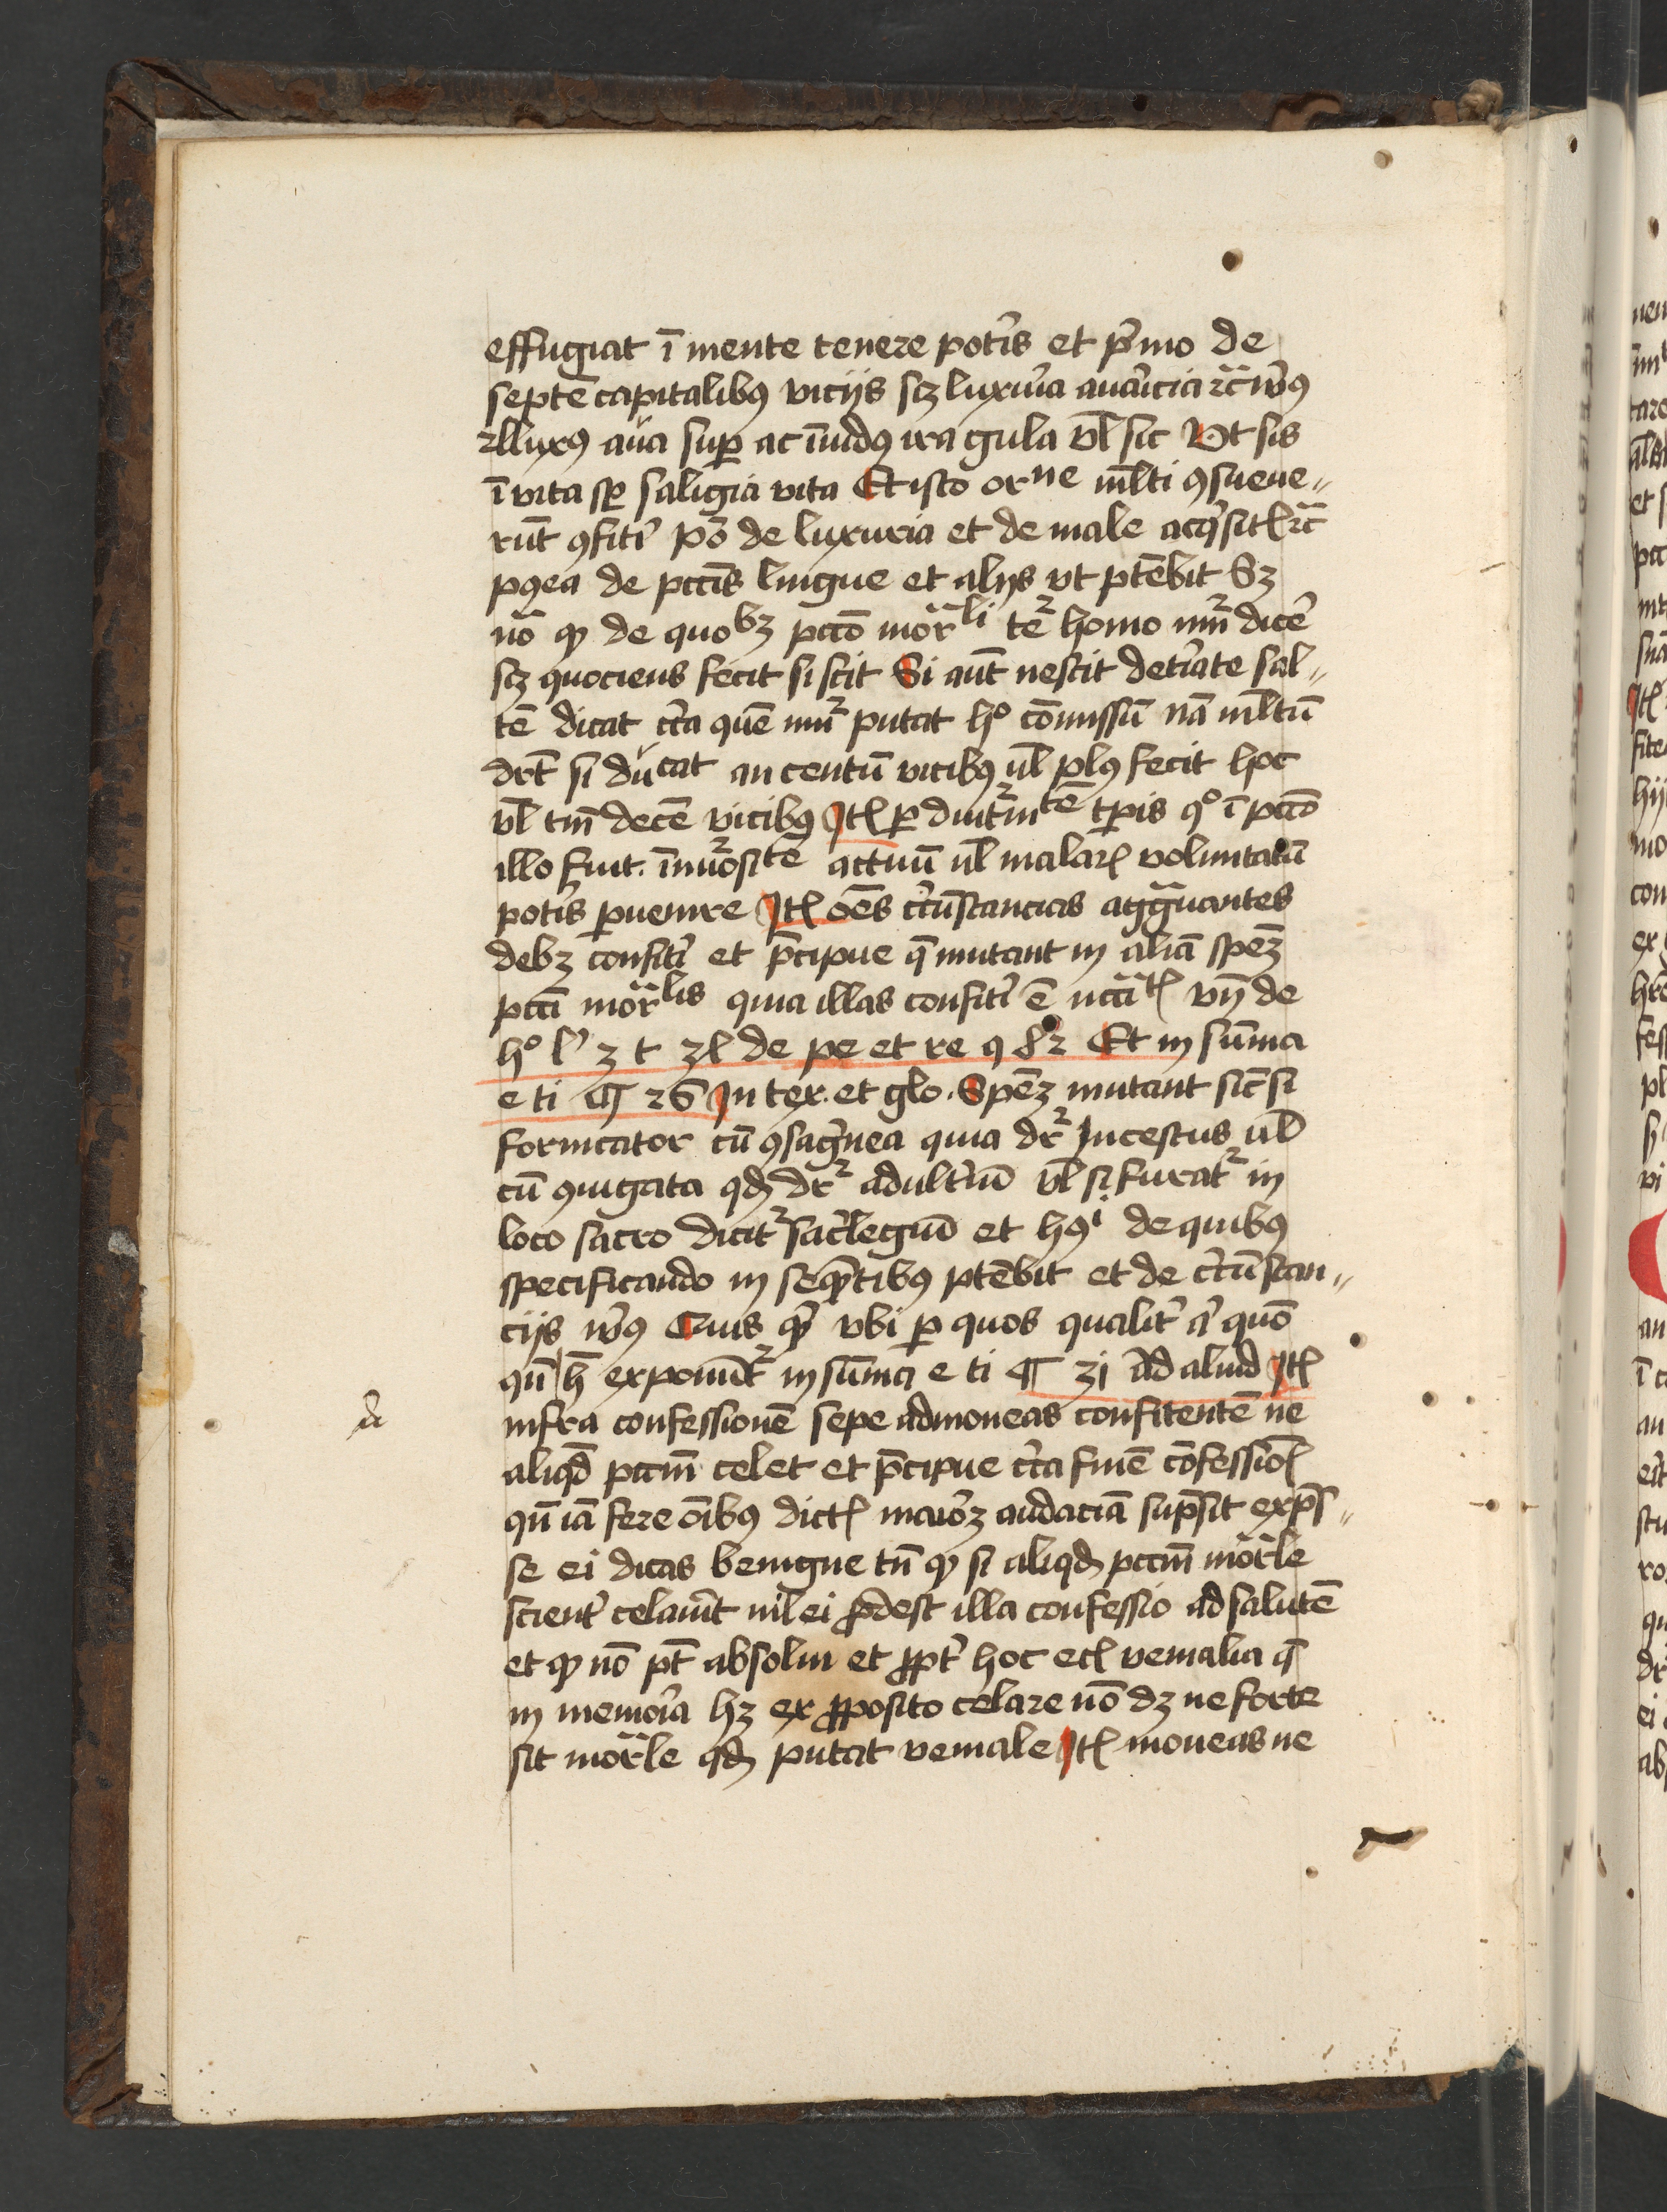 effugiat ī mente tenere potīs et pͥmo de
septē capitalibꝰ vicijs scꝫ luxuͥa auaͥcia ⁊c̄ vͤsꝰ
⁊lluxꝰ aūa suꝑ ac īuidꝰ ira gula vl̄ sic Vt sis
ī vita sꝑ saligia vita Et isto orⁿᵉ ml̄ti ꝯsueue〃
rūt ꝯfiteͥ pō de luxuria et de male acqͥsitꝭ ⁊c̄
pꝰea de pccīs lingue et alijs vt ptēbit Sꝫ
nō ꝙ de quobꝫ pccō mōrli te᷑ homo nu᷑m dicē
scꝫ quociens fecit si scit Si aūt nescit detͥate sal〃
tē dicat cͥca quē nu᷑m putat hͦ cōmissū nā ml̄tū
drt̄ si dūcat an centū vicibꝰ ul̄ plꝰ fecit hoc
vl̄ tm̄ decē vicibꝰ Jtꝭ ꝑ diutͥnitē tꝑis qͦ ī pccō
illo fuit. īnu᷑ositē actuū ul̄ malarꝭ voluntatū
potīs ꝑuenire Jtꝭ oēs cͥcūstancias agg̃uantes
debꝫ confiteͥ et p̄cipue q̄ mutant in aliā spēꝫ
pccī mōrlis quia illas confiteͥ ē nccͣͥꝭ vn̄ de
hͦ lͥ 3 t 3l de pe et re ꝯ 8᷑2 Et in sūma
e ti ¶ 26 Jn tex. et glo. Spēꝫ mutant sic̄ si
fornicator cū ꝯsagͥnea quia dr᷑ Jncestus ul̄
cū ꝯiugata qđ dr᷑ adultͥiū vl̄ si furat᷑ in
loco sacro dicit᷑ sacͥlegiū et hꝰi de quibꝰ
specificando in seqn̄tibꝰ ptēbit et de cͥcūstan〃
cijs vͤsꝰ Quis qͥd vbi ꝑ quos qualitͥ aͥ quō
qn̄ h̄ exponūt᷑ in sūma e ti ¶ 31 ad aliud Jtꝭ
infra confessionē sepe admoneas confitentē ne
aliqd̄ pccm̄ celet et p̄cipue cͥca finē cōfessiōꝭ
qn̄ iā fere oībꝰ dictꝭ maiōꝫ audaciā supͥsit expͥs〃
se ei dicas benigne tn̄ ꝙ si aliqđ pccm̄ mōrle
scientͥ celauͥit nil ei ꝓdest illa confessio ad salutē
et ꝙ nō pt̄ absolui et ꝓptͥ hoc ecꝭ venialia q̄
in memoͥa hꝫ ex ꝓposito celare nō dꝫ ne forte
sit mōrle qđ putat veniale Jtꝭ moneas ne